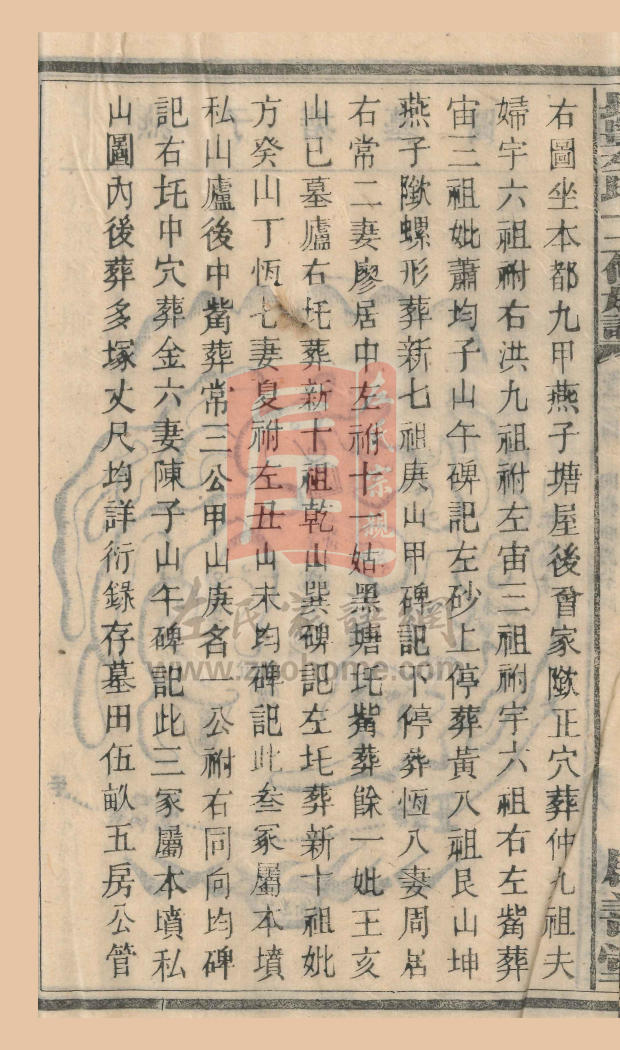 右圖坐本都九甲燕子塘屋後曾家歟正穴葬仲九祖夫
婦宇六祖祔右洪九祖祔左宙三祖祔宇六祖右左觜葬
宙三祖妣蕭均子山午碑記左砂上停葬黃八祖艮山坤
燕子歟螺形葬新七祖庚山甲碑記下停葬恆八妻周居
右常二妻廖居中左祔十一姑黑塘圫觜葬餘一妣王亥
山巳墓廬右圫葬新十祖乾山巽碑記左圫葬新十祖妣
方癸山丁恆七妻夏祔左丑山未均碑記此叁冢屬本墳
私山廬後中觜葬常三公甲山庚名一公祔右同向均碑
記右圫中穴葬金六妻陳子山午碑記此三冢屬本墳私
山圖內後葬多塚丈尺均詳衍錄存墓田伍畝五房公管
www.zaohome.com